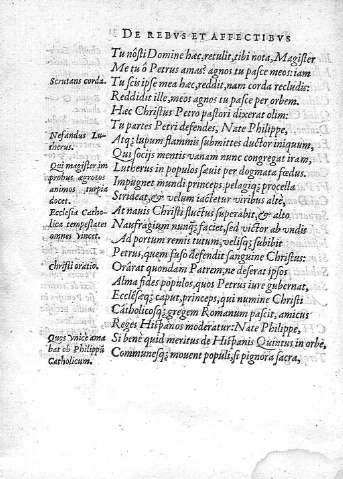 DE REBVS ET AFFECTIBVS
Tu nôsti Domine hæc, retulit, tibi nota, Magister
Me tu ô Petrus amas? agnos tu pasce meos: iam
Scrutans corda.
Tu scis ipse mea hæc, reddit, nam corda recludis:
Reddidit ille, meos agnos tu pasce per orbem.
Hæc Christus Petro pastori dixerat olim:
Tu partes Petri defendes, Nate Philippe,
Nefandus Lu-
therus.
Atq; lupum flammis submittes ductor iniquum,
Qui socijs mentis vanam nunc congregat iram,
Qui magister im
probus agrotos
animos turpia
docet.
Lutherus in populos sæuit per dogmata fœdus.
Impugnet mundi princeps, pelagiq; procella
Strideat, & velum iactetur viribus altè,
Ecclesia Catho-
lica tempestates
omnes vincet.
At nauis Christi fluctus superabit, & alto
Naufragium nunq; faciet, sed victor ab vndis
Ad portum remis tutum, velisq; subibit
Petrus, quem fuso defendit sanguine Christus:
Christi oratio.
Orârat quondam Patrem, ne deserat ipsos
Alma fides populos, quos Petrus iure gubernat,
Ecclesæq; caput, princeps, qui numine Christi
Catholicosq; gregem Romanum pascit, amicus
Reges Hispanos moderatur: Nate Philippe,
Quos vnicè ama
bat ob Philippũ
Catholicum.
Si benè quid meritus de Hispanis Quintus in orbe,
Communesq; mouent populi, si pignora sacra,